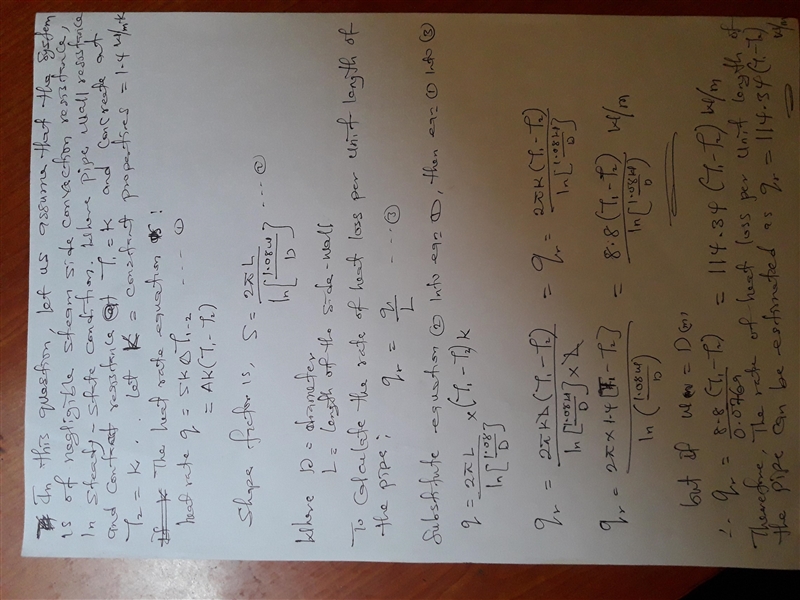 In this question, let us assume that the system
is of negligible steam side convection resistence,
in Steady-State condition. Where pipe wall resistence
and Contact resistence @ T₁ = K and Concreate at
T₂ = K. Let K = constant properties = 1.4 W/mK
The heat rate equation is:
heat rate q = SKΔT₁₋₂ ---- ①
= AK(T₁-T₂)
Shape factor is, S = 2πL / ln[1.08W/D] --- ②
Where D = diameter
L = length of the side-wall
To Calculate the rate of heat loss per unit length of
the pipe;
qᵣ = q/L --- ③
Substitute equation ② into eqn ①, then eqn ① into ③
q = 2πL / ln[1.08/D] × (T₁-T₂)K
qᵣ = 2πKL(T₁-T₂) / ln[1.08W/D] × L = qᵣ = 2πK(T₁-T₂) / ln[1.08W/D]
qᵣ = 2π×1.4[T₁-T₂] / ln(1.08W/D) = 8.8(T₁-T₂) / ln[1.08W/D] W/m
but if W(m) = D(m)
∴ qᵣ = 8.8(T₁-T₂) / 0.0769 = 114.34(T₁-T₂) W/m
Therefore, The rate of heat loss per unit length of
the pipe can be estimated as qᵣ = 114.34(T₁-T₂) W/m